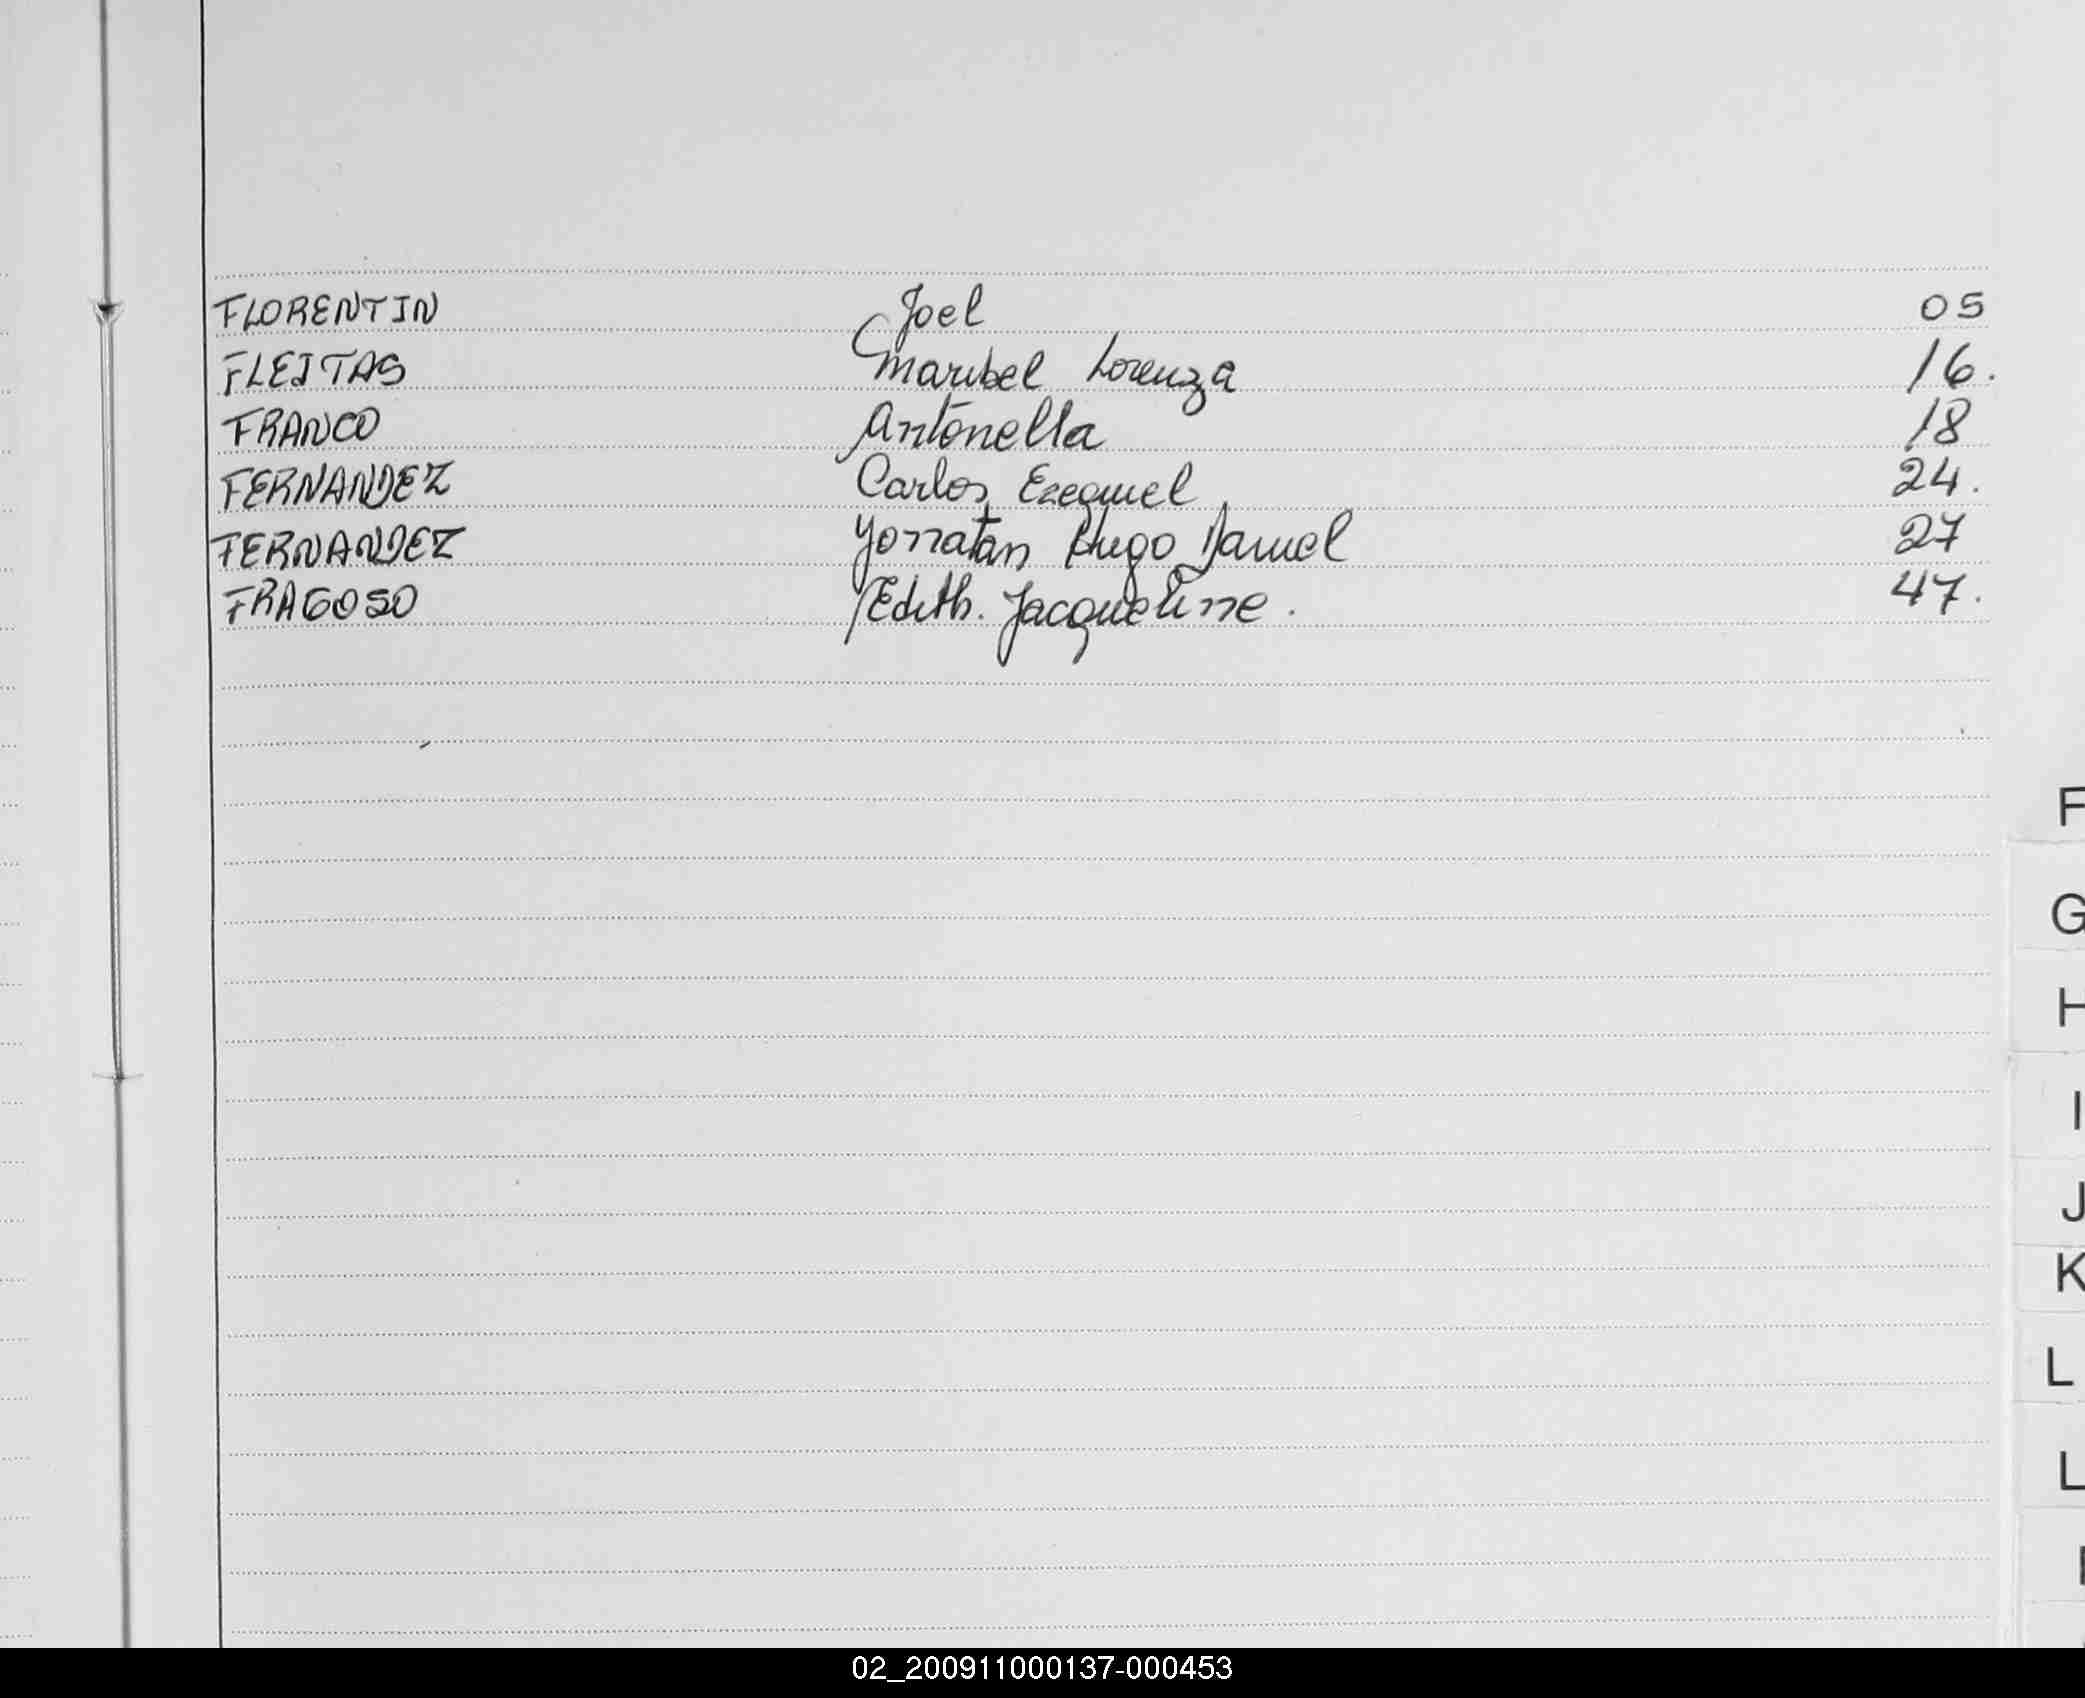 FLORENTIN Joel 05
FLEITAS Maribel Lorenza 16.
FRANCO Antonella 18
FERNANDEZ Carlos Ezequiel 24.
FERNANDEZ Yonatan Hugo Daniel 27
FRAGOSO Edith. Jacqueline. 47.
F
G
H
I
J
K
L
L
02_200911000137-000453